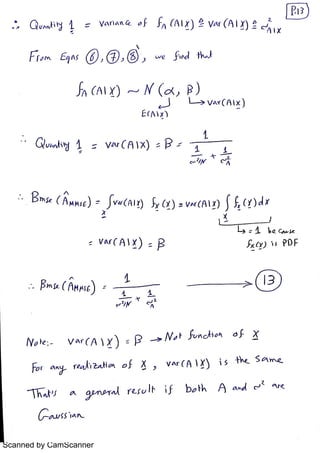 P.13
∴ Quantity 1 = variance of f_A(A|X) ≜ var(A|X) ≜ σ²_A|X
From Eqns ⑥, ⑦, ⑧, we find that
f_A(A|X) ~ N(α, β)
E(A|X) → var(A|X)
∴ Quantity 1 = var(A|X) = β = 1 / (1/(σ²/N) + 1/σ²_A)
∴ Bmse(Â_MMSE) = ∫_X var(A|X) f_X(X) = var(A|X) ∫_X f_X(X) dx
↳ = 1 because
= var(A|X) = β f_X(X) is PDF
∴ Bmse(Â_MMSE) = 1 / (1/(σ²/N) + 1/σ²_A) → ⑬
Note:- var(A|X) = β → Not function of X
For any realization of X, var(A|X) is the same
That's a general result if both A and σ² are
Gaussian.
Scanned by CamScanner